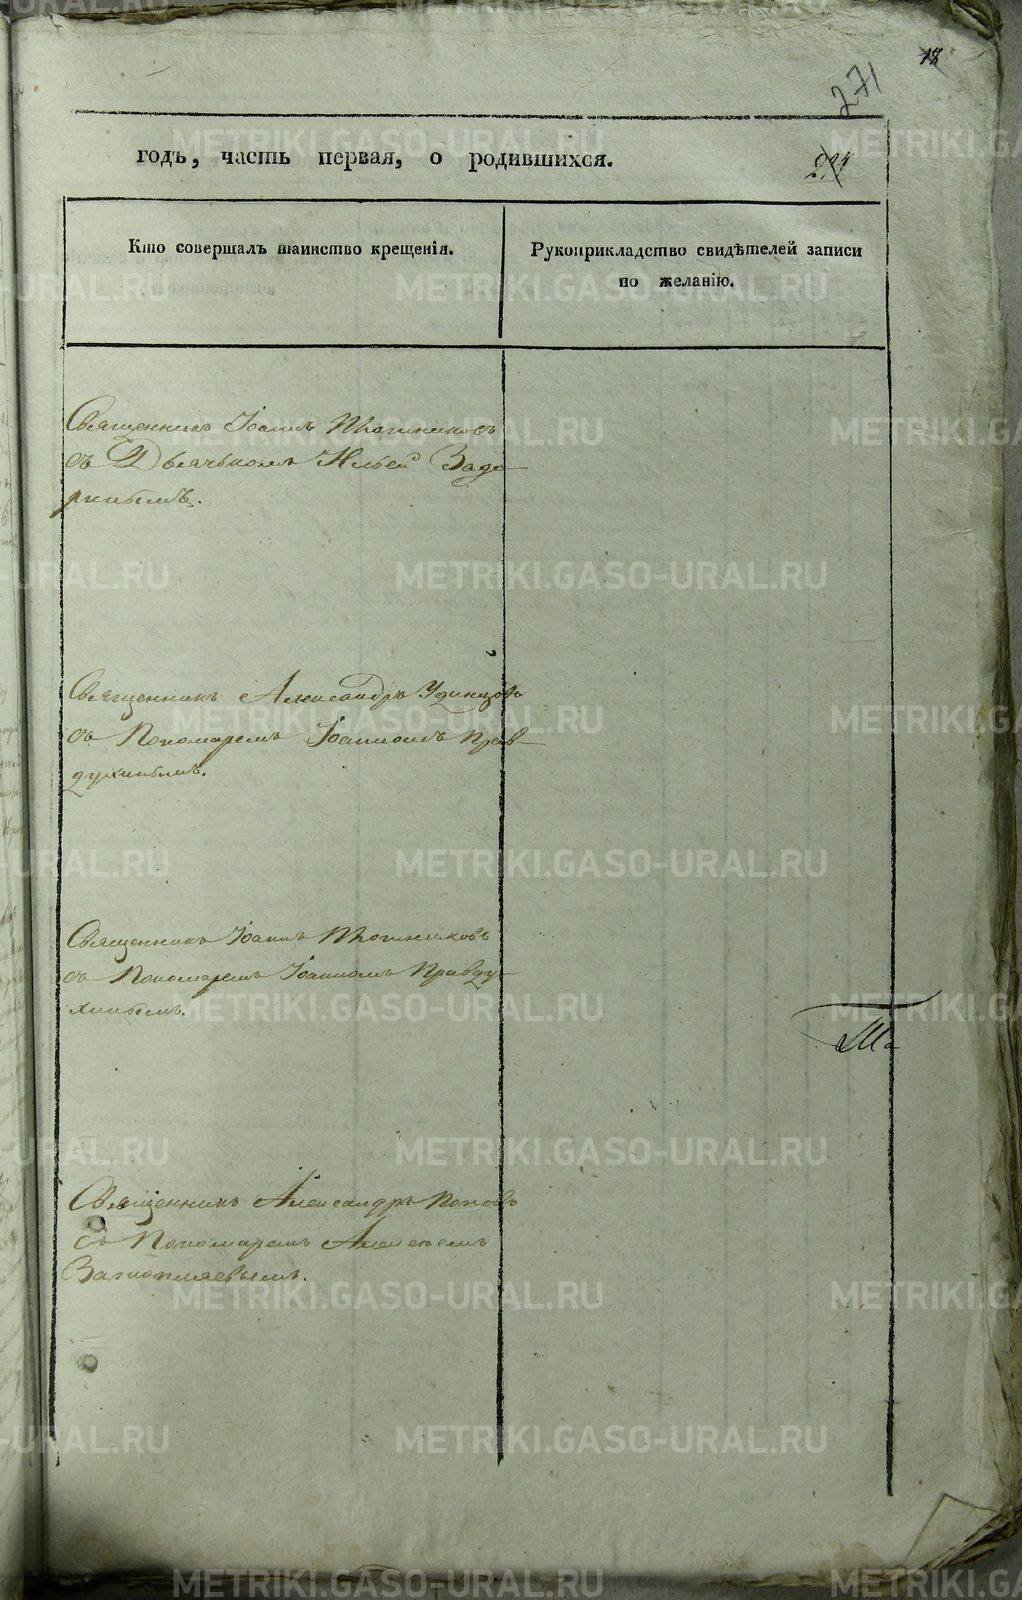 18
271
годъ, часть первая, о родившихся.
Кто совершалъ таинство крещенія.
Рукоприкладство свидѣтелей записи
по желанію.
Священникъ Іоаннъ
съ Дьячькомъ Ильей Задо-
ринымъ.
Священникъ Александръ Удинцовъ
съ Пономаремъ Іоанномъ Прав-
духинымъ.
Священникъ Іоаннъ
съ Пономаремъ Іоанномъ Правду-
хинымъ.
Священникъ Александръ Поповъ
съ Пономаремъ Алексѣемъ
METRIKI.GASO-URAL.RU